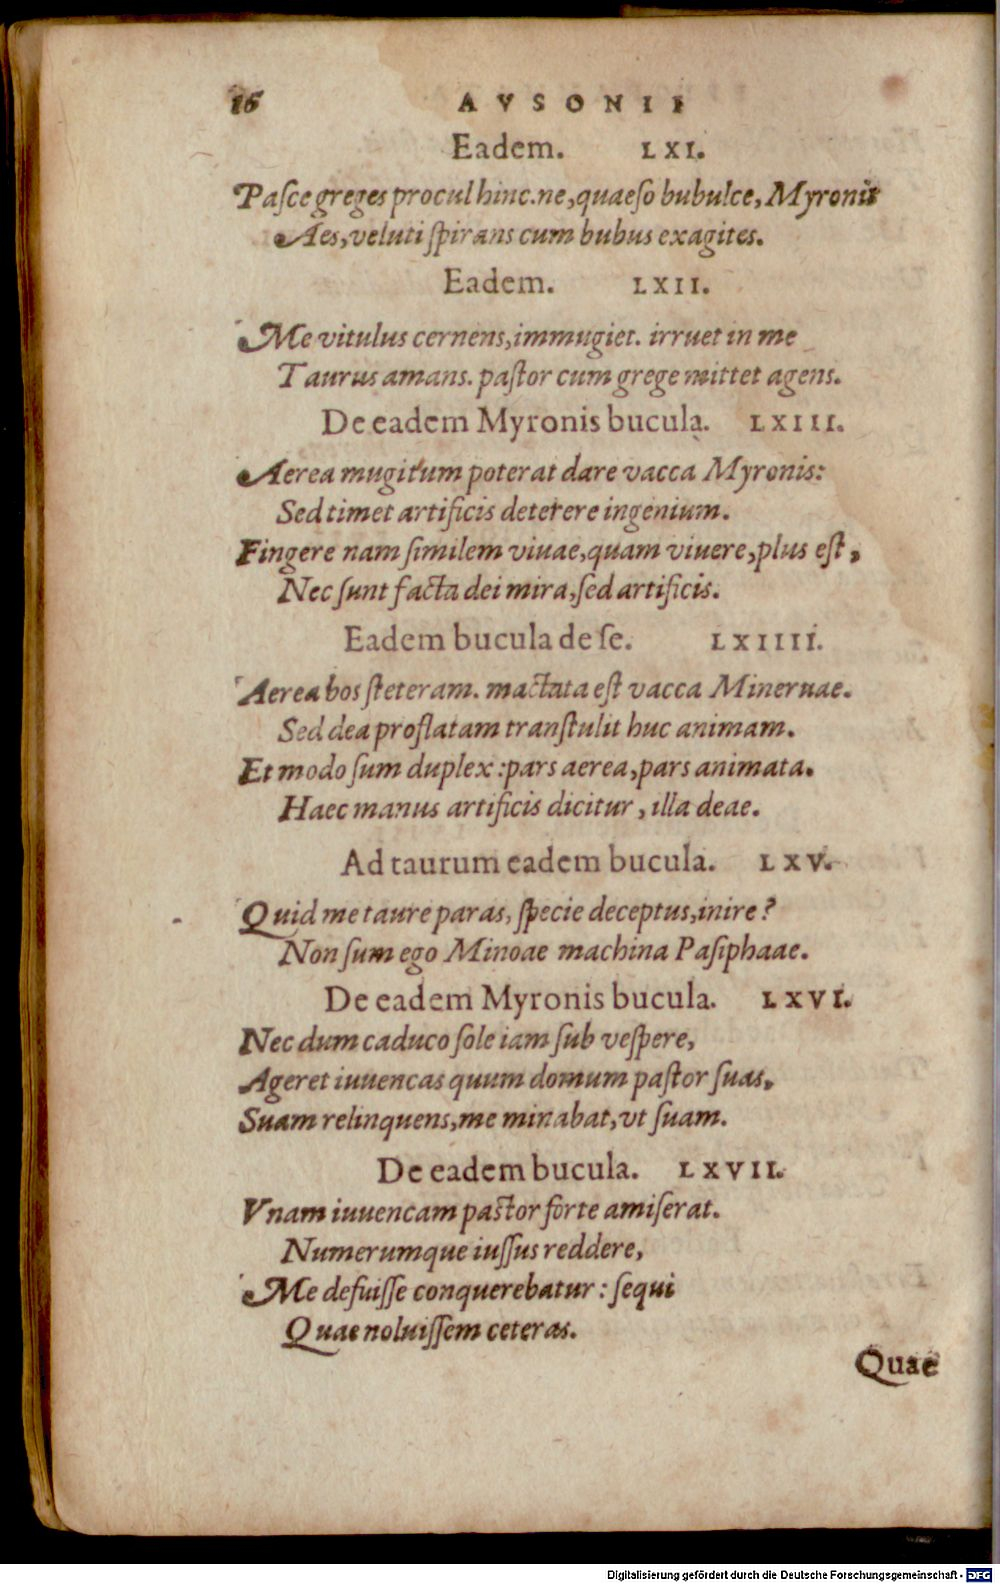 16 AVSONII
Eadem. LXI.
Paſce greges procul hinc. ne, quaeſo bubulce, Myronis
Aes, veluti ſpirans cum bubus exagites.
Eadem. LXII.
Me vitulus cernens, immugiet. irruet in me
Taurus amans. paſtor cum grege mittet agens.
De eadem Myronis bucula. LXIII.
Aerea mugitum poterat dare vacca Myronis:
Sed timet artificis deterere ingenium.
Fingere nam ſimilem viuae, quam viuere, plus eſt,
Nec ſunt facta dei mira, ſed artificis.
Eadem bucula de ſe. LXIIII.
Aerea bos ſteteram. mactata eſt vacca Mineruae.
Sed dea proflatam tranſtulit huc animam.
Et modo ſum duplex: pars aerea, pars animata.
Haec manus artificis dicitur, illa deae.
Ad taurum eadem bucula. LXV.
Quid me taure paras, ſpecie deceptus, inire?
Non ſum ego Minoae machina Paſiphaae.
De eadem Myronis bucula. LXVI.
Nec dum caduco ſole iam ſub veſpere,
Ageret iuuencas quum domum paſtor ſuas,
Suam relinquens, me minabat, vt ſuam.
De eadem bucula. LXVII.
Vnam iuuencam paſtor forte amiſerat.
Numerumque iuſſus reddere,
Me defuiſſe conquerebatur: ſequi
Quae noluiſſem ceteras.
Quae
Digitalisierung gefördert durch die Deutsche Forschungsgemeinschaft - DFG